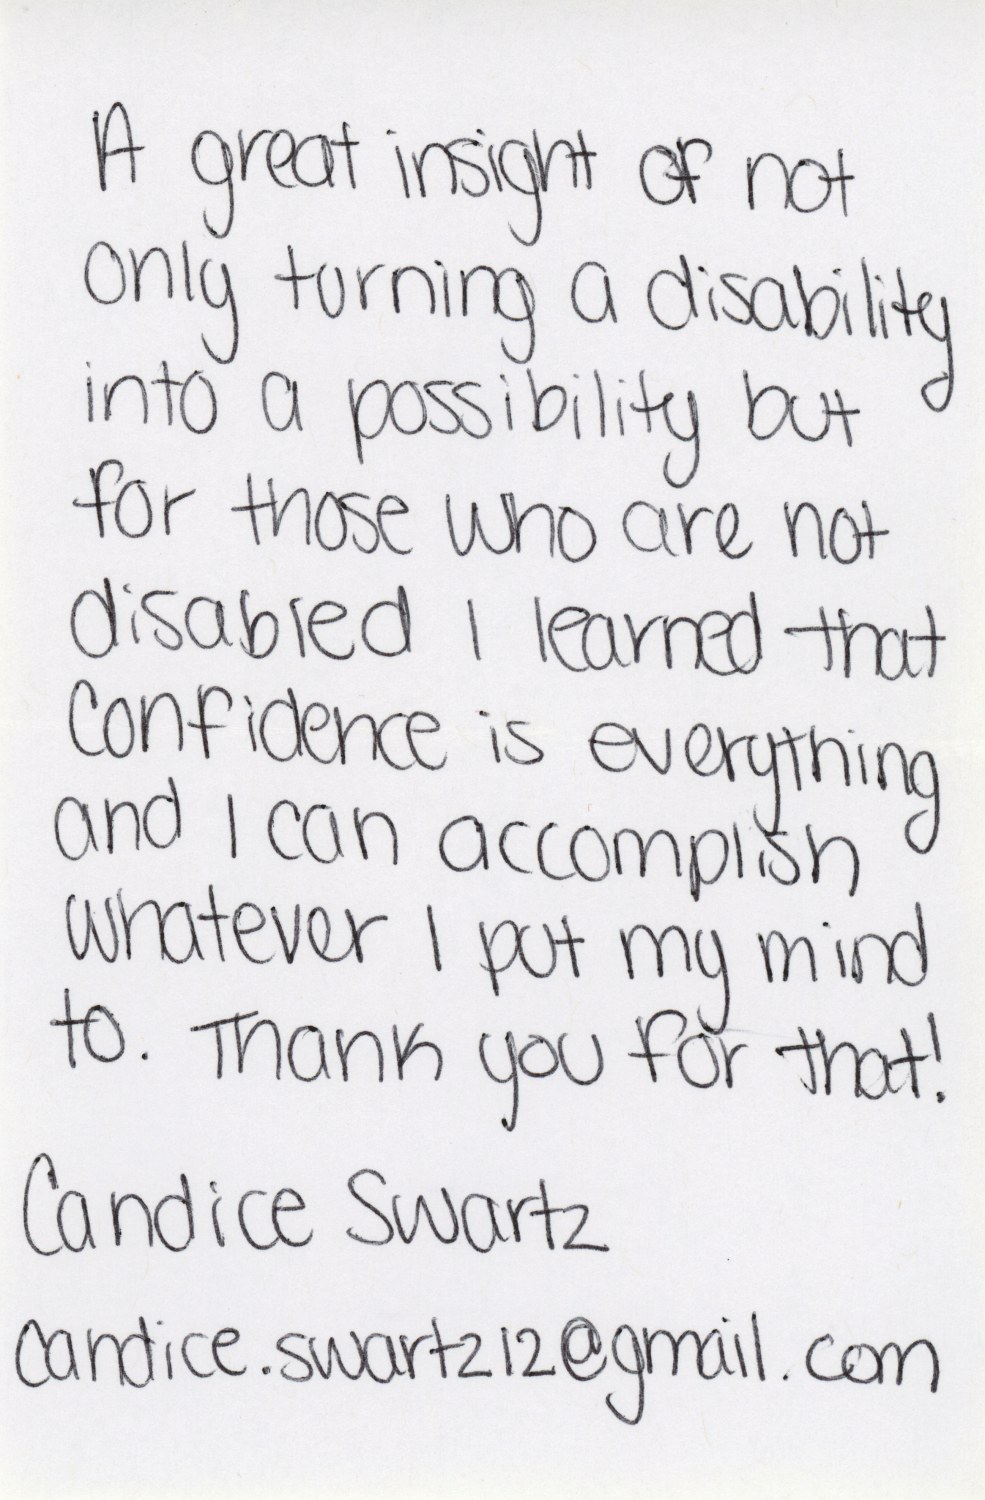 A great insight of not
only turning a disability
into a possibility but
for those who are not
disabled I learned that
Confidence is everything
and I can accomplish
whatever I put my mind
to. Thank you for that!
Candice Swartz
candice.swartz12@gmail.com